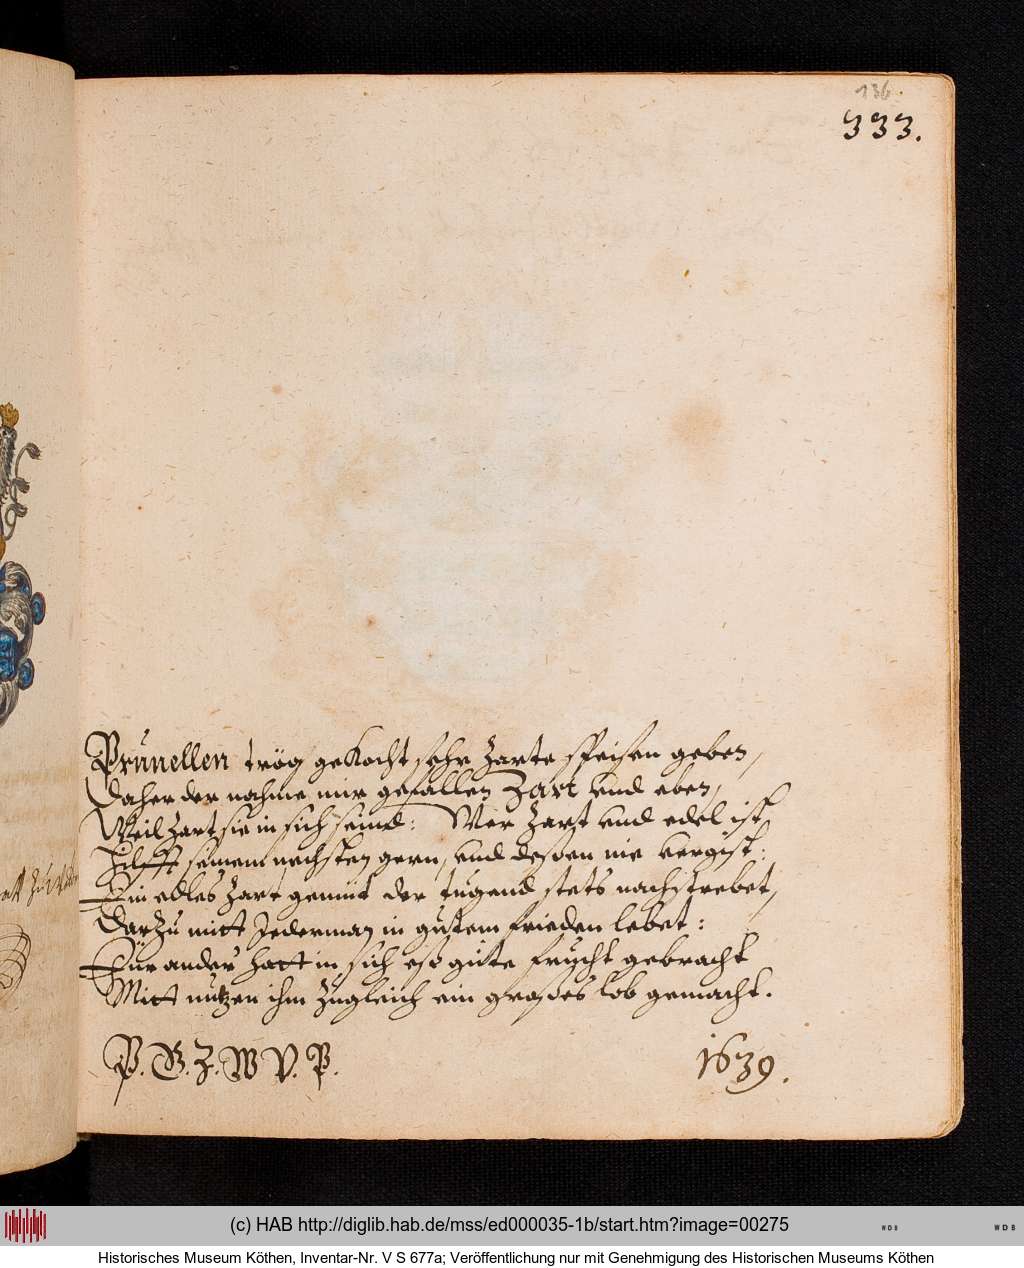 136.
333.
Prunellen trög gekocht sehr zarte speisen geben,
Daher der nahme mir gefallen Zart vnd eben,
Weil zart sie in sich seind: Wer zart vnd edel ist
Hilfft seinem nechsten gern, vnd deßen nie vergist:
Ein edles zart gemüt der tugend stets nachstrebet,
Darzu mitt Jederman in gutem frieden lebet:
Für ander hatt in sich eß gute frucht gebracht
Mitt nutzen ihm zugleich ein großes lob gemacht.
P. G. Z. W V. P. 1639.
att
(c) HAB http://diglib.hab.de/mss/ed000035-1b/start.htm?image=00275
WDB
WDB
Historisches Museum Köthen, Inventar-Nr. V S 677a; Veröffentlichung nur mit Genehmigung des Historischen Museums Köthen